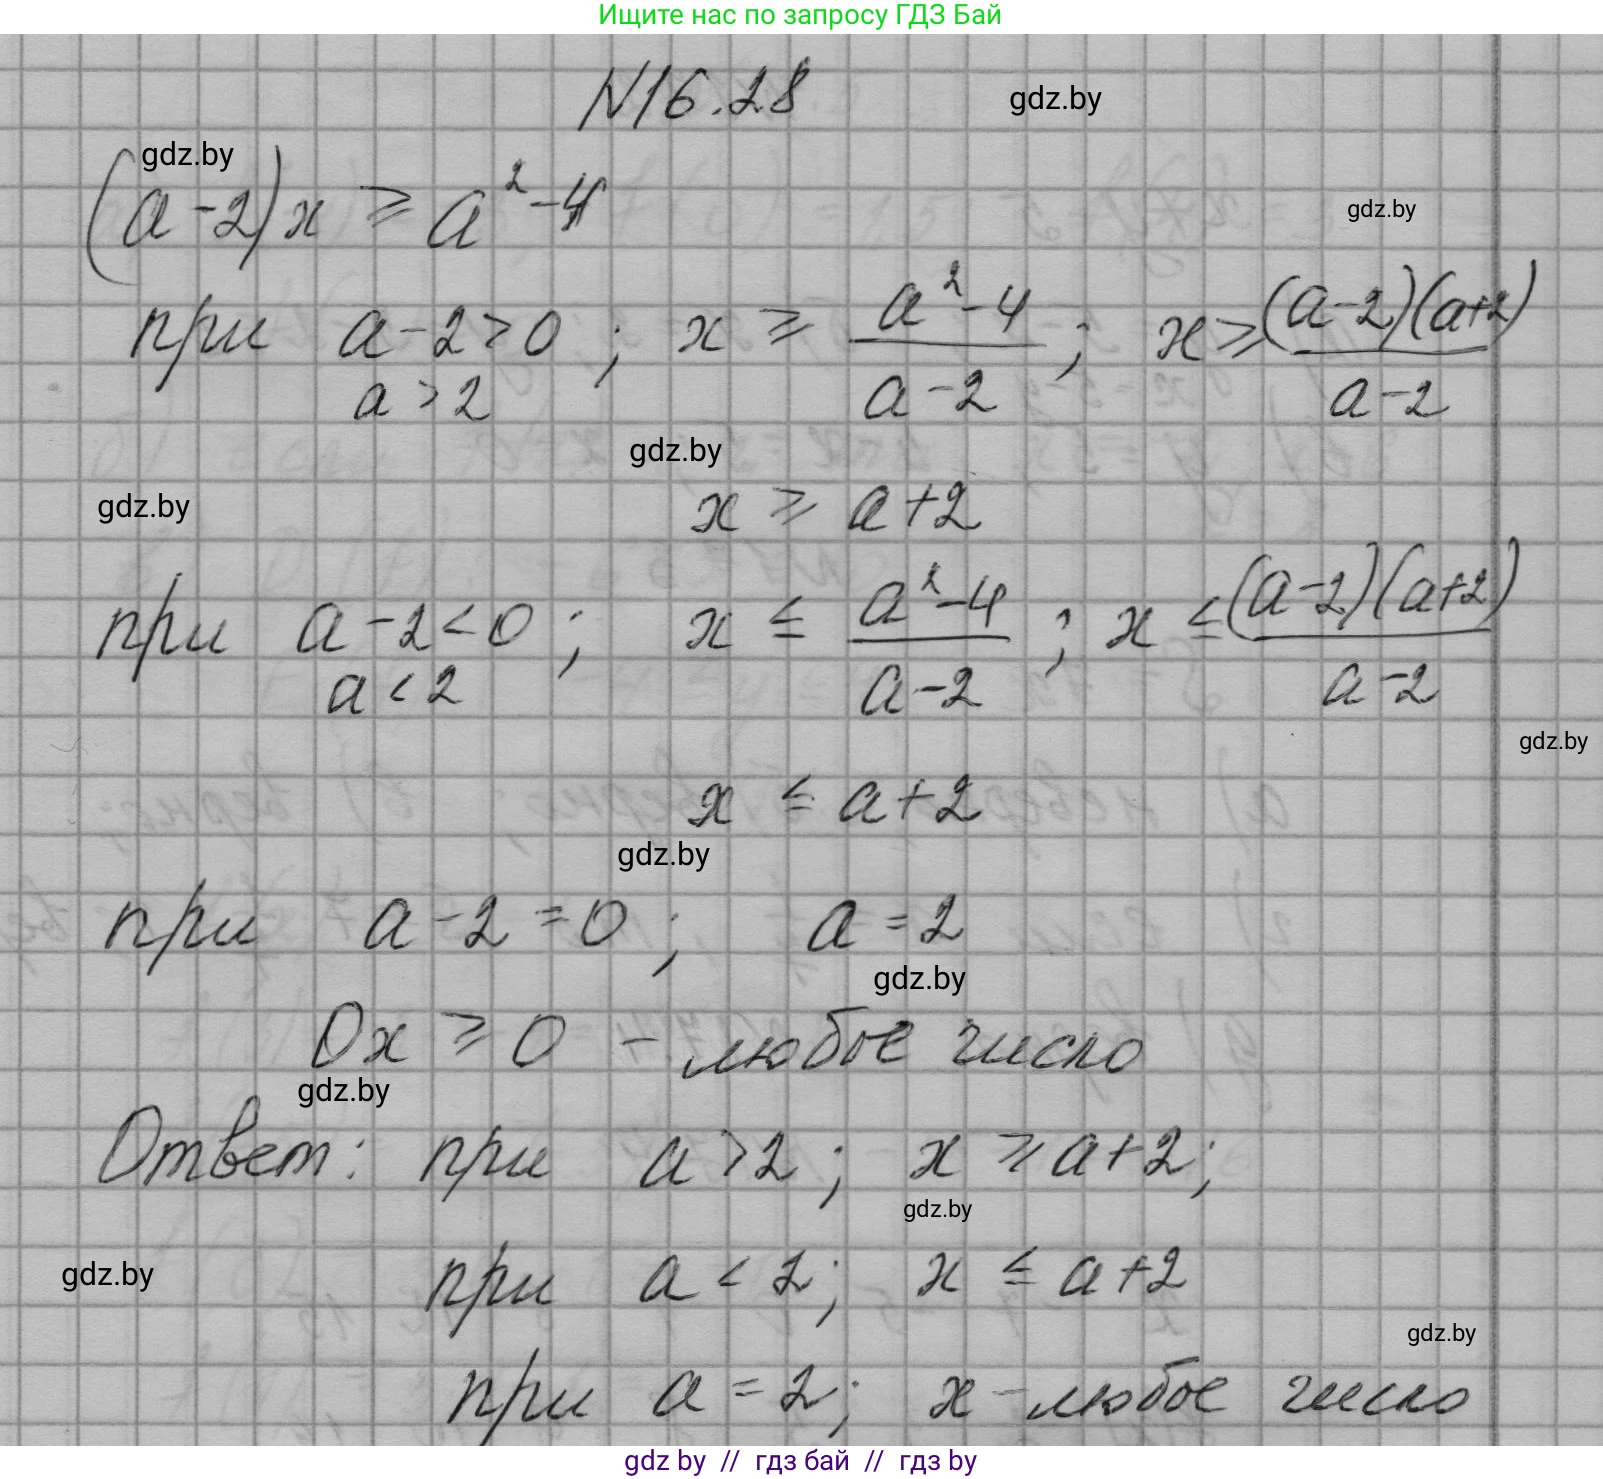 Ищите нас по запросу ГДЗ Бай
N16.28
gdz.by
gdz.by
(a-2)x ≥ a²-4
gdz.by
при a-2>0; x ≥ (a²-4)/(a-2); x ≥ (a-2)(a+2)/(a-2)
a>2
gdz.by
gdz.by
x ≥ a+2
при a-2<0; x ≤ (a²-4)/(a-2); x ≤ (a-2)(a+2)/(a-2)
a<2
gdz.by
x ≤ a+2
gdz.by
при a-2=0; a=2
gdz.by
0x ≥ 0 - любое число
gdz.by
Ответ: при a>2; x ≥ a+2;
gdz.by
при a<2; x ≤ a+2
gdz.by
gdz.by
при a=2; x - любое число
gdz by // гдз бай // гдз by